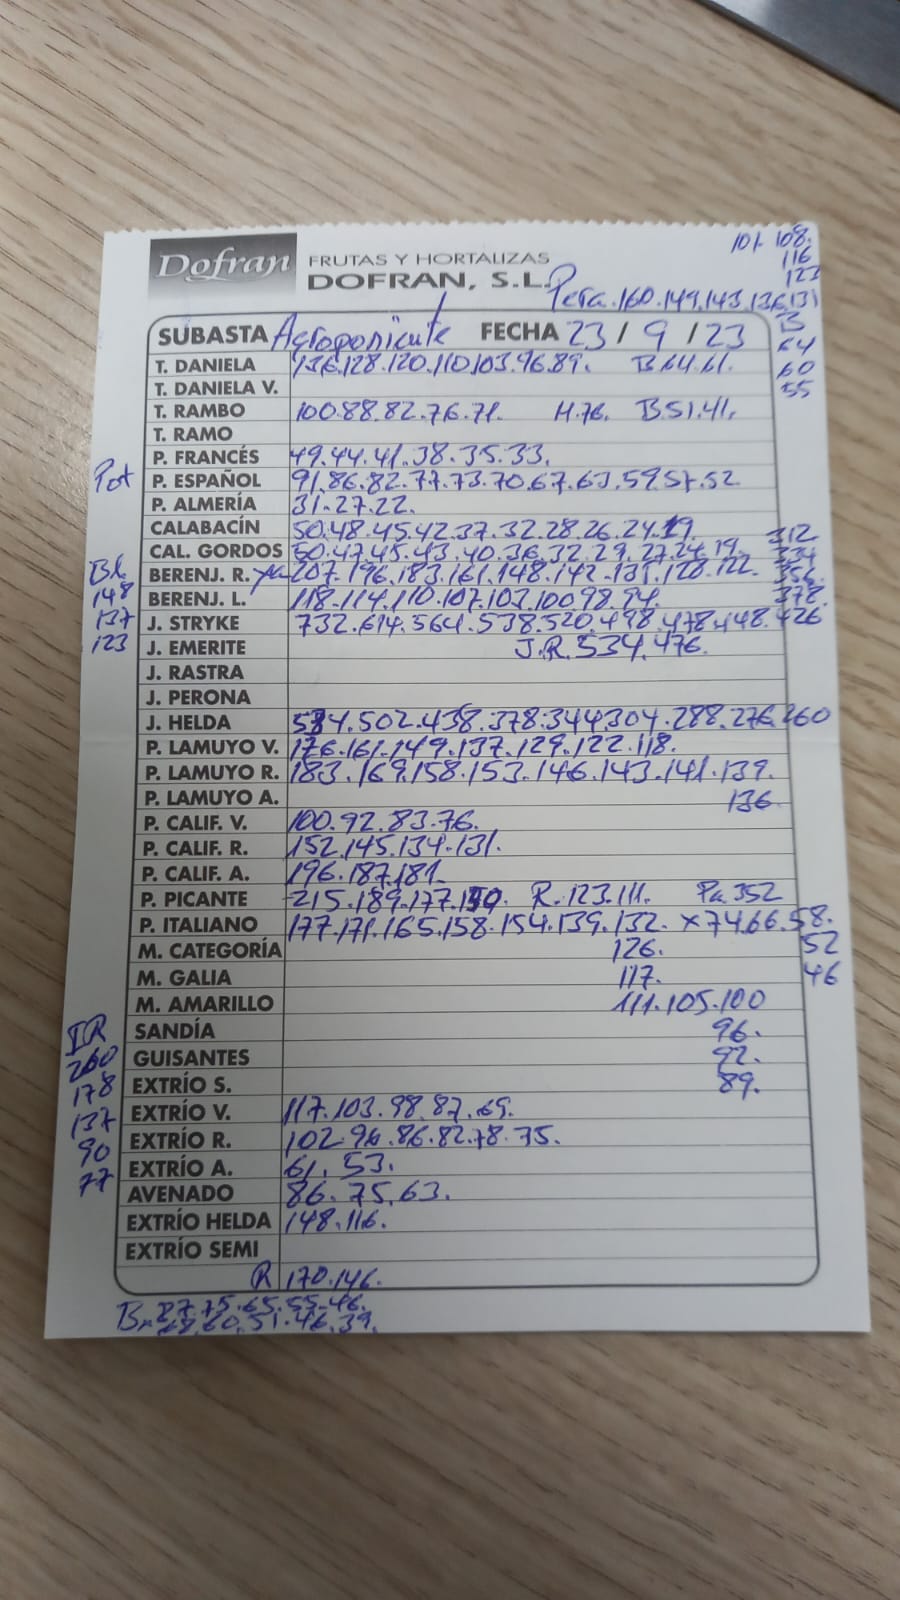 101-108.
116
123
Dofran FRUTAS Y HORTALIZAS
DOFRAN, S.L.
Pera.160.149.143.136.131
B
64
60
55
SUBASTA Agroponiente FECHA 23 / 9 / 23
T. DANIELA 136.128.120.110.103.96.89. B64.61.
T. DANIELA V.
T. RAMBO 100.88.82.76.71. H.76. B51.41.
T. RAMO
P. FRANCÉS 49.44.41.38.35.33.
Pot P. ESPAÑOL 91.86.82.77.73.70.67.63.59.57.52
P. ALMERÍA 31.27.22.
CALABACÍN 50.48.45.42.37.32.28.26.24.19.
CAL. GORDOS 50.47.45.43.40.36.32.29.27.24.19.
312
334
BERENJ. R. 207.196.183.161.148.142.131.128.122.
378.
Bl
148
137
123
BERENJ. L. 118.114.110.107.103.100.98.94.
J. STRYKE 732.614.564.538.520.498.478.448.426
J. EMERITE J.R.534.476.
J. RASTRA
J. PERONA
J. HELDA 584.502.438.378.344.304.288.276.260
P. LAMUYO V. 176.161.149.137.129.122.118.
P. LAMUYO R. 183.169.158.153.146.143.141.139.
P. LAMUYO A. 136
P. CALIF. V. 100.92.83.76.
P. CALIF. R. 152.145.134.131.
P. CALIF. A. 196.187.181.
P. PICANTE 215.189.177.150. R.123.111. Pa.352
P. ITALIANO 177.171.165.158.154.139.132. x74.66.58.
52
46
M. CATEGORÍA 126.
M. GALIA 117.
M. AMARILLO 111.105.100
SANDÍA 96.
GUISANTES 92.
EXTRÍO S. 89.
IR
260
178
137
90
77
EXTRÍO V. 117.103.98.87.69.
EXTRÍO R. 102.96.86.82.78.75.
EXTRÍO A. 61.53.
AVENADO 86.75.63.
EXTRÍO HELDA 148.116.
EXTRÍO SEMI
R 170.146.
B. 87.75.65.55.46.
68.60.51.46.39.